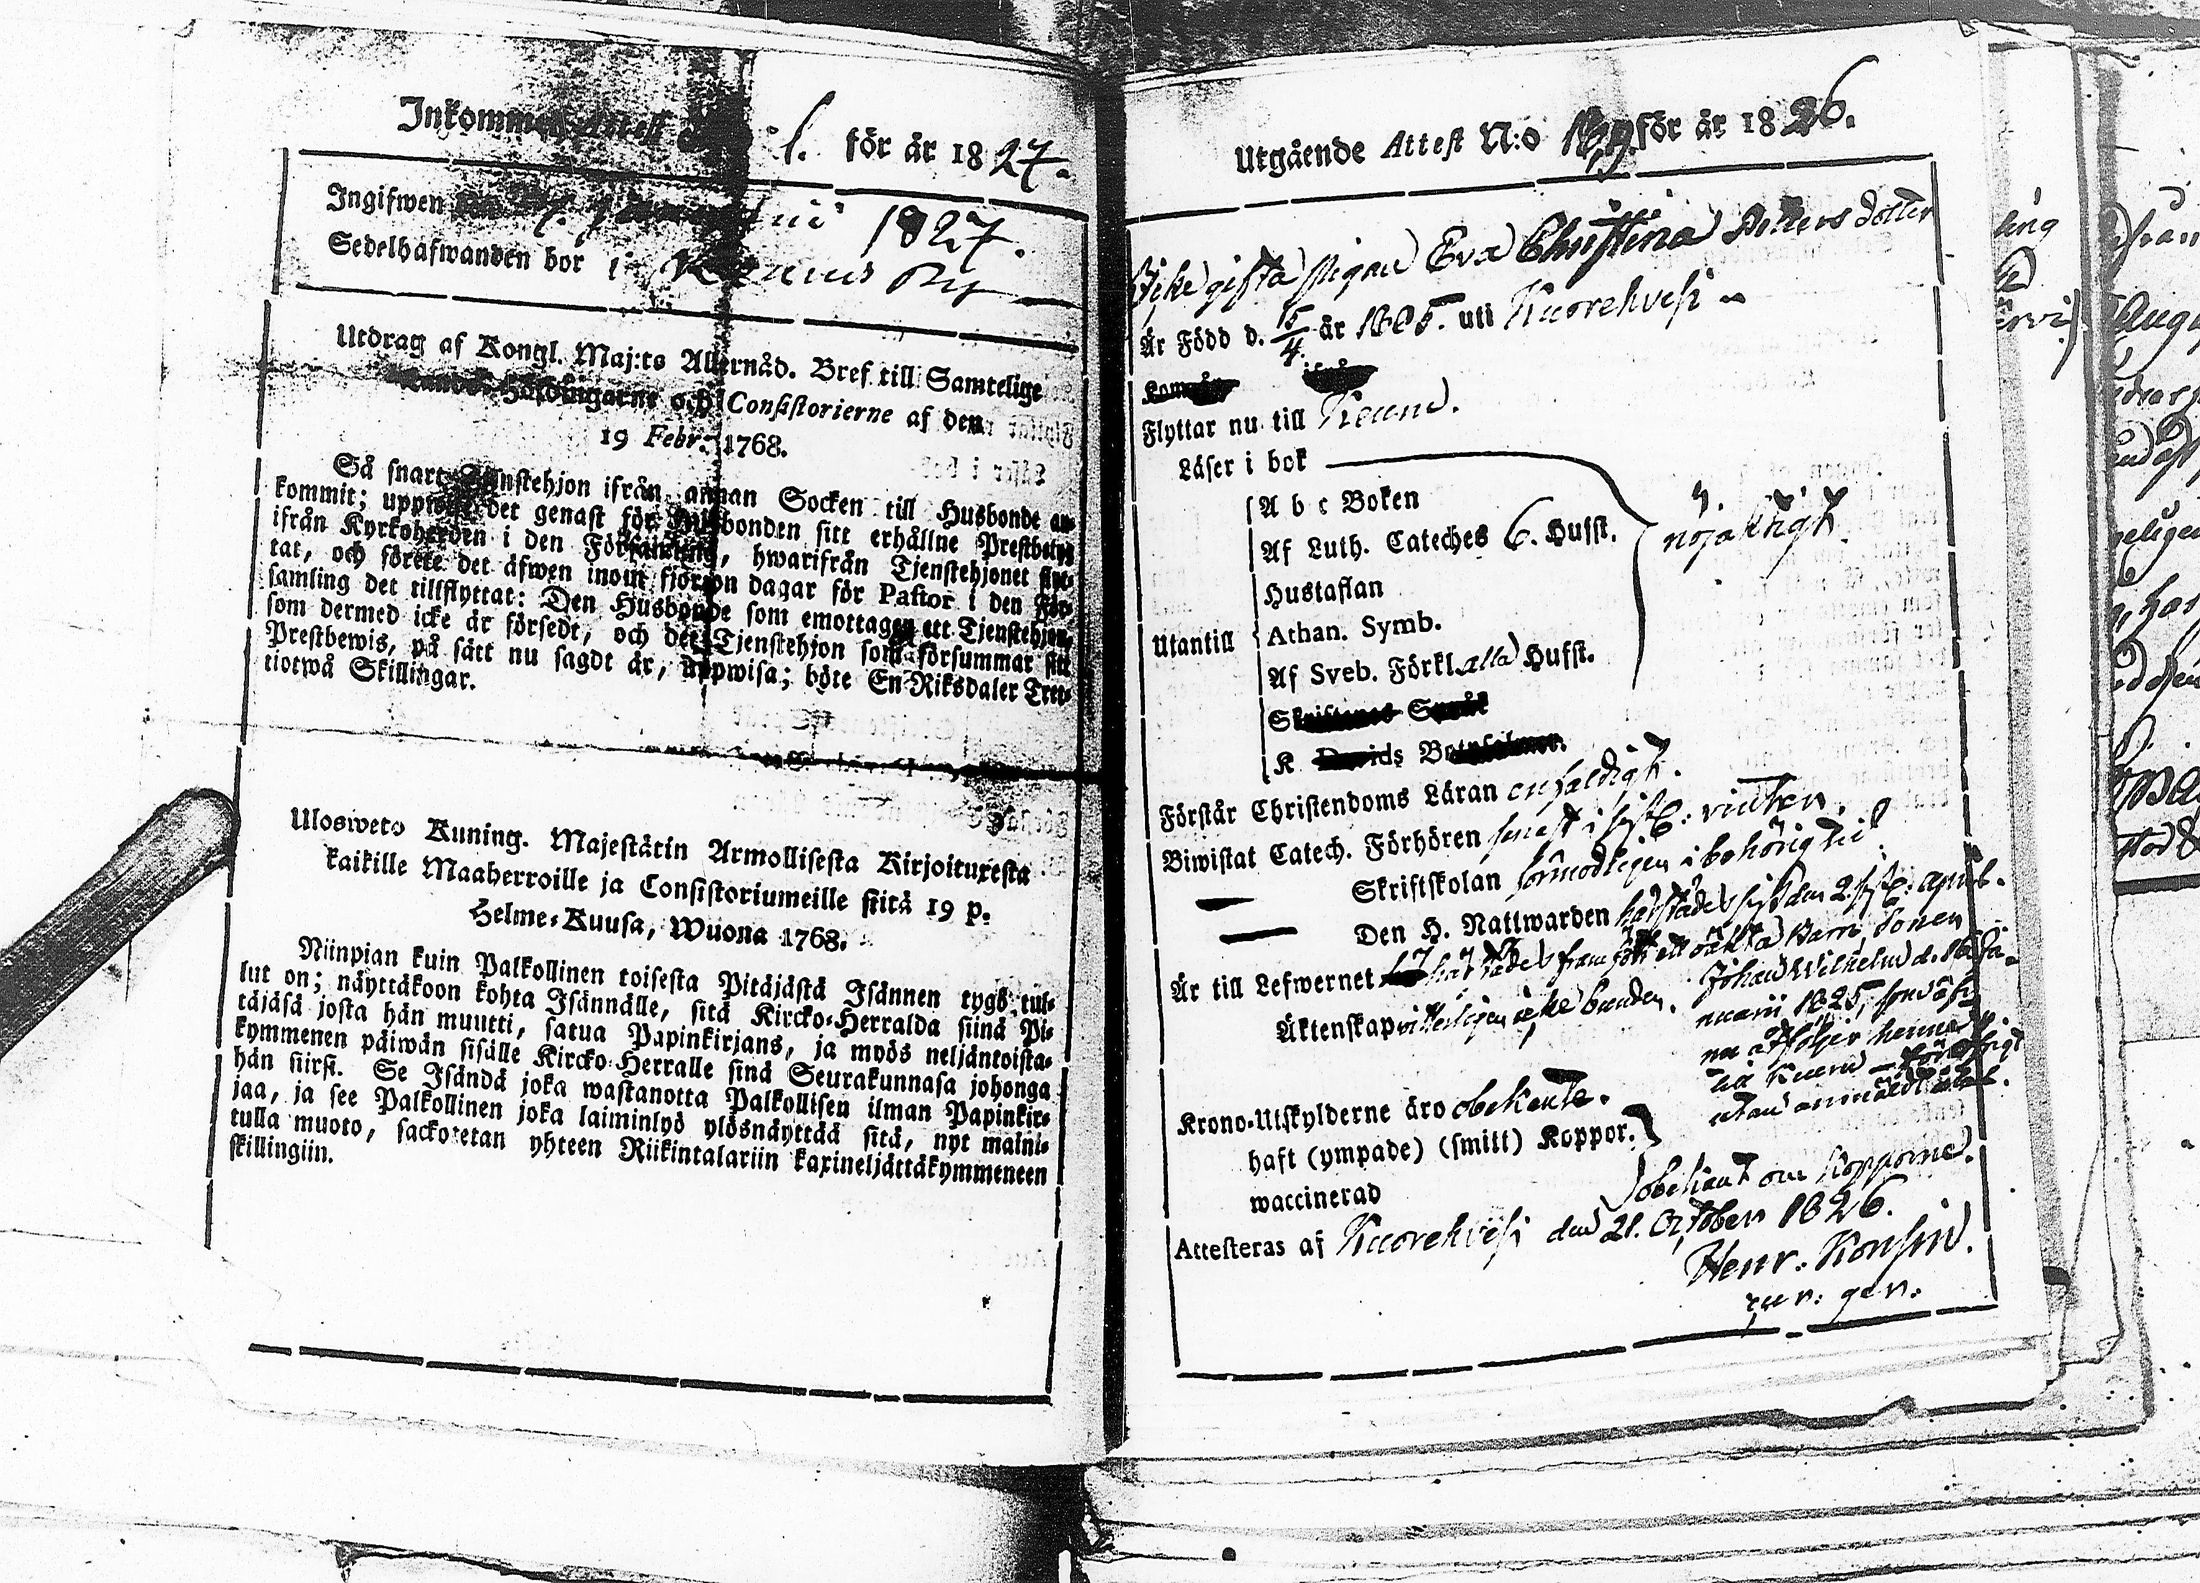 Inkommen Attest 1. för år 1827.
Ingifwen 1827.
Sedelhafwanden bor i By
Utdrag af Kongl. Maj:ts Allernåd. Bref till Samtelige
Höfdingarne och Consistorierne af den
19 Febr. 1768.
Så snart Tjenstehjon ifrån annan Socken till Husbonde an-
kommit; uppwise det genast för Husbonden sitt erhållne Prestbetyg
ifrån Kyrkoherden i den Församling, hwarifrån Tjenstehjonet flyt-
tat, och förete det äfwen inom fjorton dagar för Pastor i den För-
samling det tillflyttat: Den Husbonde som emottager ett Tjenstehjon,
som dermed icke är försedt, och det Tjenstehjon som försummar sitt
Prestbewis, på sätt nu sagdt är, uppwisa; böte En Riksdaler Tret-
tiotwå Skillingar.
Ulosweto Kuning. Majestätin Armollisesta Kirjoituxesta
kaikille Maaherroille ja Consistoriumeille siitä 19 p.
Helme-Kuusa, Wuona 1768.
Niinpian kuin Palkollinen toisesta Pitäjästä Isännen tygö tul-
lut on; näyttäkoon kohta Isännälle, sitä Kircko-Herralda siinä Pi-
täjäsä josta hän muutti, satua Papinkirjans, ja myös neljäntoista-
kymmenen päiwän sisälle Kircko-Herralle sinä Seurakunnasa johonga
hän siirsi. Se Isändä joka wastanotta Palkollisen ilman Papinkir-
jaa, ja see Palkollinen joka laiminlyö ylösnäyttää sitä, nyt maini-
tulla muoto, sackotetan yhteen Riikintalariin kaxineljättäkymmeneen
skillingiin.
Utgående Attest N:o för år 1826.
Icke gifta pigan Eva Christina Petters dotter
Är Född d. 15/4 år 1805. uti Kuorehvesi
Flyttar nu till Keuru.
Läser i bok
A b c Boken
Af Luth. Cateches 6. Hufst. nöjaktigt.
Hustaflan
Utantill Athan. Symb.
Af Sveb. Förkl. alla Hufst.
Skriftenes Språk
K Davids Botpsalmer.
Förstår Christendoms Läran enfaldigt.
Biwistat Catech. Förhören senast i sistl: vinter.
Skriftskolan förmodligen i behörig tid.
Den H. Nattwarden härstädes sist den 2. sistl: april.
Är till Lefwernet härstädes framfödt ett oäkta barn, sonen
Johan Wilhelm d. 16 Ja-
Äktenskap vitterligen icke bunden. nuarii 1825, som äf-
ven åtföljer henne
till Keuru
utan anmäldt
Krono-Utskylderne äro obekante.
haft (ympade) (smitt) Koppor.
waccinerad obekant om kopporne.
Attesteras af Kuorehvesi den 21. October 1826.
Henr: Konsin.